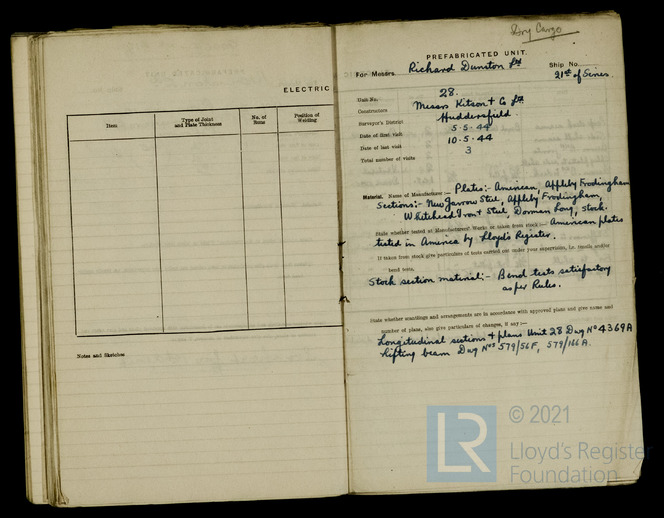 ELECTRIC
Item
Type of Joint and Plate Thickness
No. of Items
Position of Welding
Notes and Sketches
Dry Cargo
PREFABRICATED UNIT.
For Messrs. Richard Dunston Ltd
Ship No.
21st of Series.
Unit No. 28.
Constructors Messrs Kitson & Co Ltd.
Surveyor's District Huddersfield.
Date of first visit 5.5.44
Date of last visit 10.5.44
Total number of visits 3
Material. Name of Manufacturer:— Plates:- American, Appleby Frodingham
Sections:- New Jarrow Steel, Appleby Frodingham,
Whitehead Iron & Steel, Dorman Long, Stock.
State whether tested at Manufacturers' Works or taken from stock:— American plates
tested in America by Lloyd's Register.
If taken from stock give particulars of tests carried out under your supervision, i.e. tensile and/or
bend tests.
Stock section material:- Bend tests satisfactory
as per Rules.
State whether scantlings and arrangements are in accordance with approved plans and give name and
number of plans, also give particulars of changes, if any:—
Longitudinal sections & plans Unit 28 Dwg No 4369A
Lifting beam Dwg Nos 579/56F, 579/166A.
LR
© 2021
Lloyd's Register
Foundation